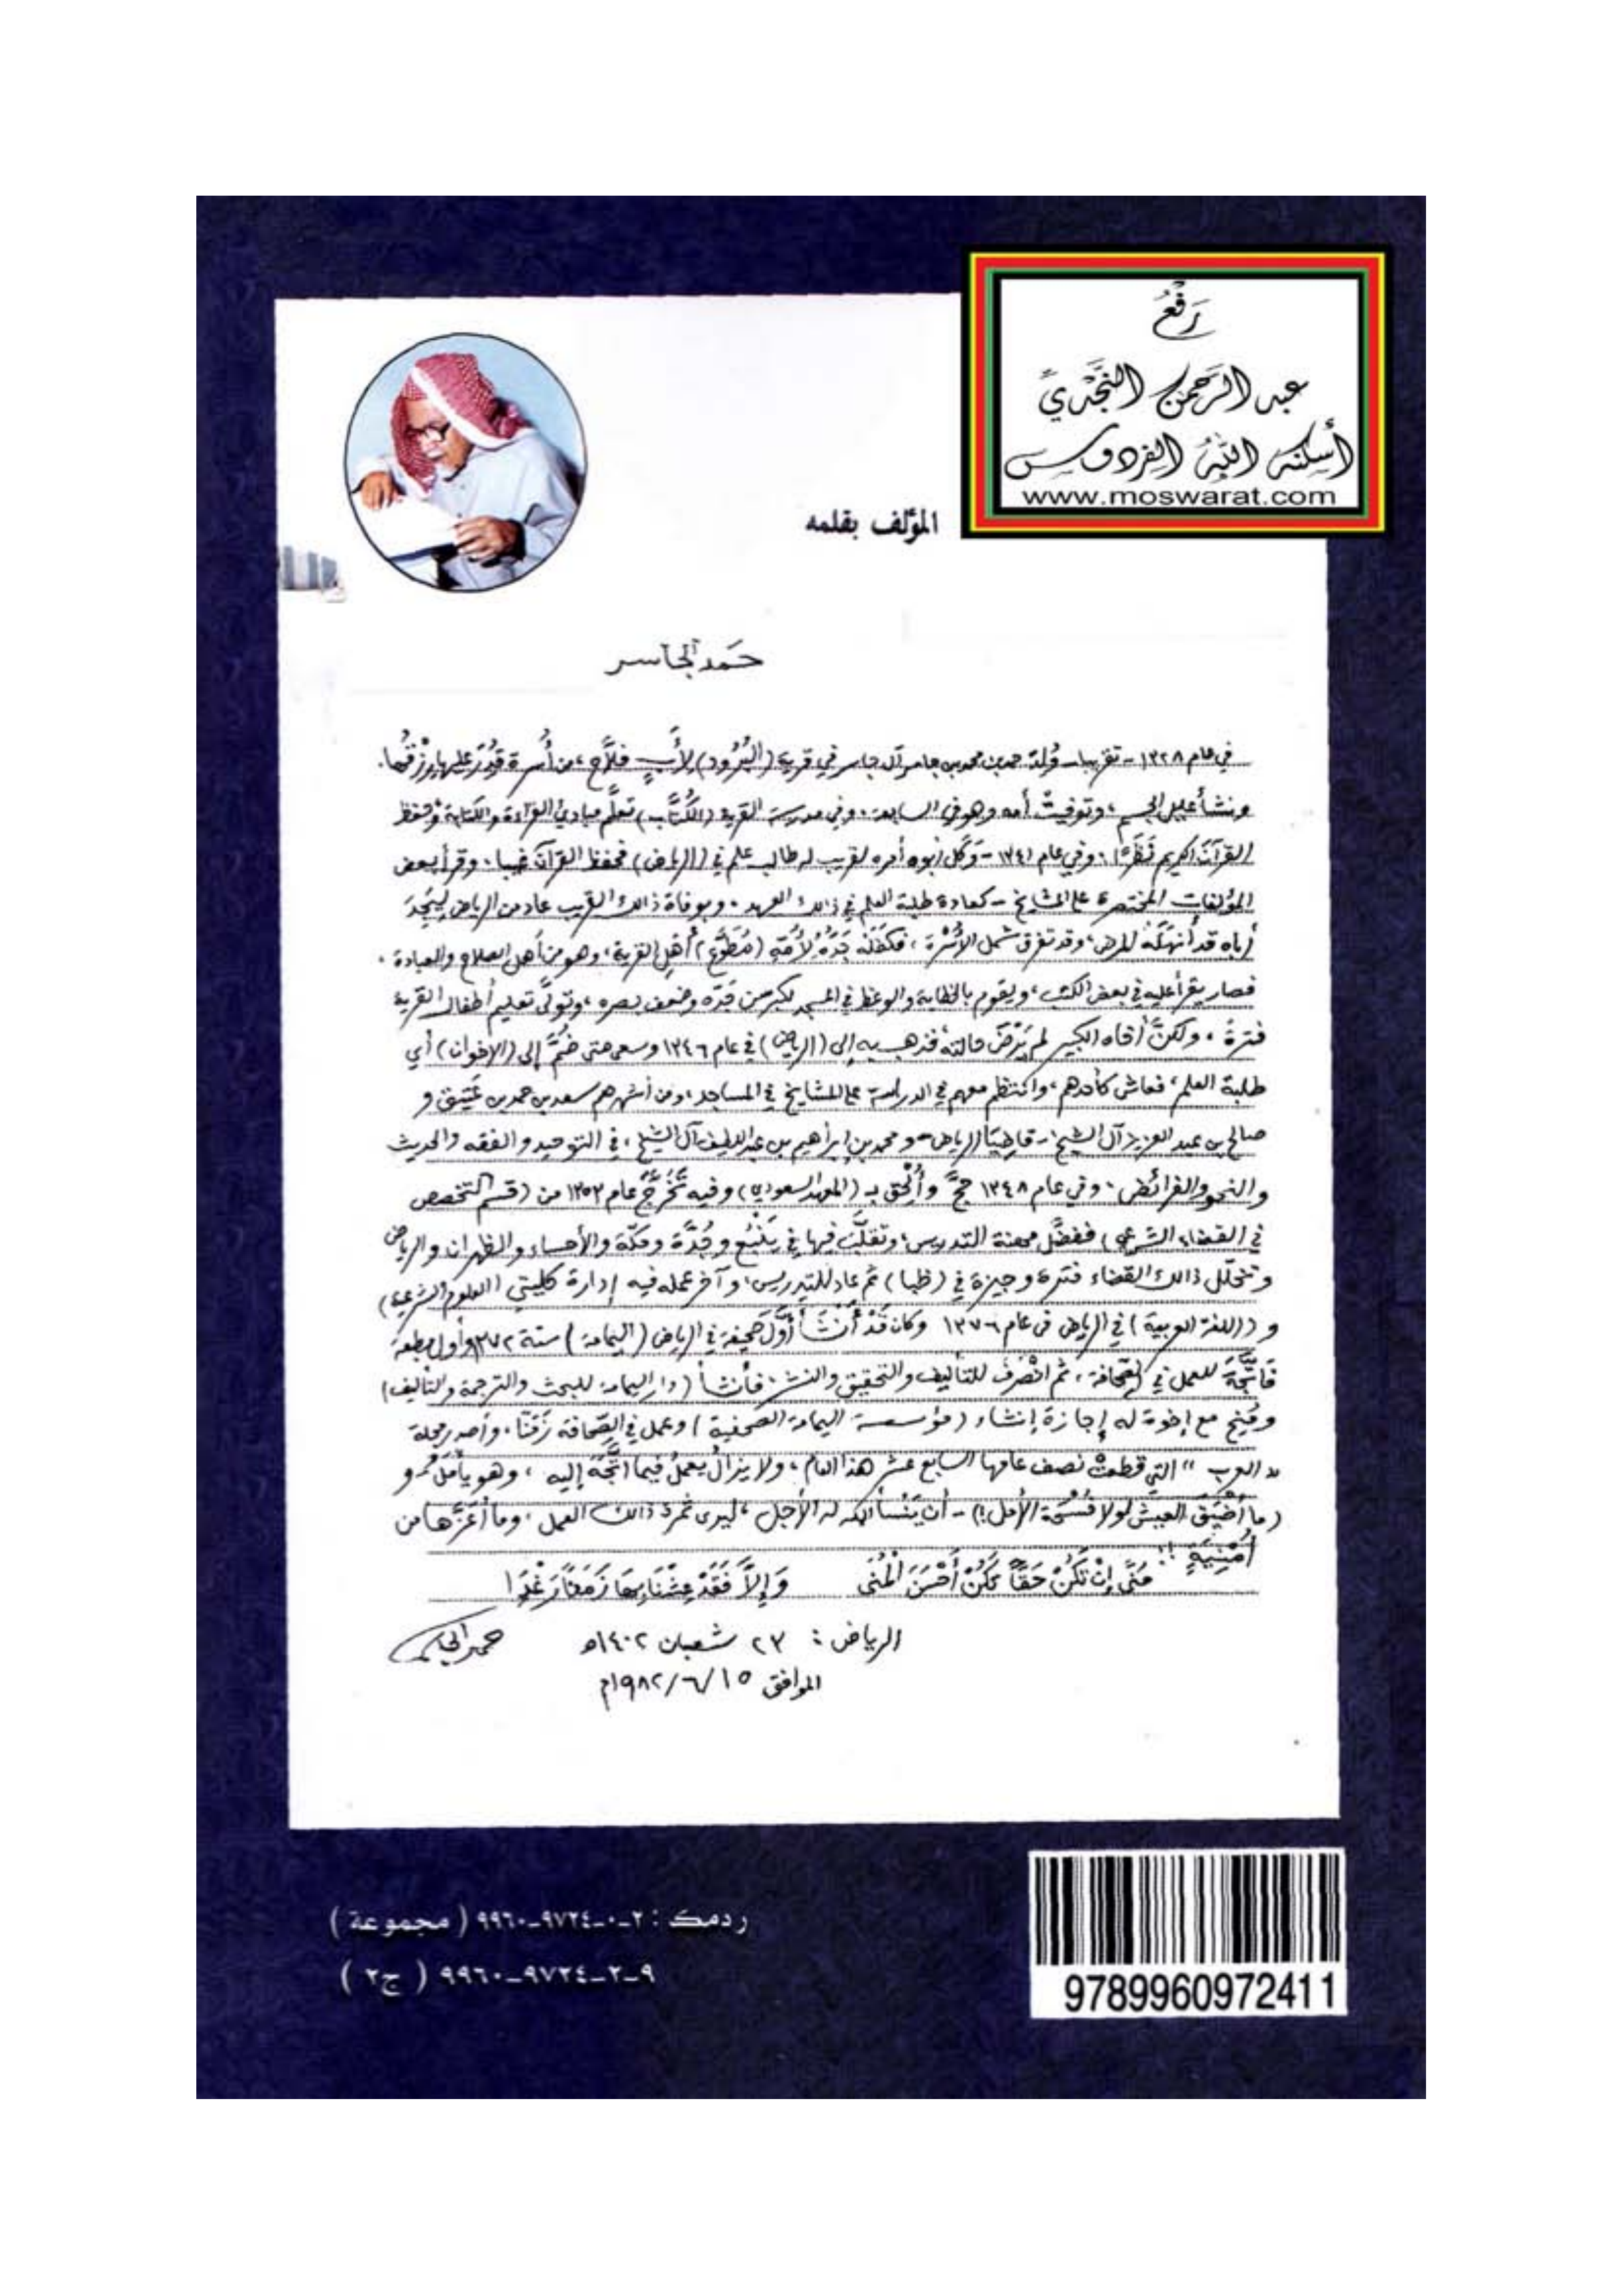 رَفْعُ
عبد الرَّحمن النَّجْديِّ
أسكنه اللهُ الفردوس
www.moswarat.com
المؤلف بقلمه
حَمد الجاسر
في عام ١٣٢٨ - تقريبا - وُلد حمد بن محمد بن جاسر آل جاسر في قرية (البُرُود) لأبٍ فلَّاح، من أُسرة قُدِرَ عليها رزقُها.
ونشأ عليل الجسم، وتوفيتْ أمه وهو في السابعة. وفي مدرسة القرية (الكُتَّاب) تعلَّم مبادئ القراءة والكتابة وحفظ
القرآن الكريم نَظَرًا. وفي عام ١٣٤١ - وَكَل أبوه أمره لقريب له طالب علم في (الرياض) فحفظ القرآن غيبا. وقرأ بعض
المؤلفات المختصرة على المشايخ - كعادة طلبة العلم في ذالك العهد. وبوفاة ذالك القريب عاد من الرياض ليَجِدَ
أباه قد أنهكه المرض، وقد تفرق شمل الأُسْرَة، فكَفَلَهُ جَدُّهُ لأُمِّهِ (مُطَوَّع) أهل القرية، وهو من أهل الصلاح والعبادة.
فصار يقرأ عليه في بعض الكتب، ويقوم بالخطابة والوعظ في المسجد لكبر سن جَدِّه وضعف بصره، وتولَّى تعليم أطفال القرية
فترةً. ولكنَّ أخاه الكبير لم يَرْضَ حالته فذهب به إلى (الرياض) في عام ١٣٤٦ وسعى حتى ضُمَّ إلى (الإخوان) أي
طلبة العلم، فعاش كأحدهم، وانتظم معهم في الدراسة على المشايخ في المساجد، ومن أشهرهم سعد بن حمد بن عَتِيق و
صالح بن عبد العزيز آل الشيخ - قاضِيَا الرياض - ومحمد بن إبراهيم بن عبد اللطيف آل الشيخ، في التوحيد والفقه والحديث
والنحو والفرائض. وفي عام ١٣٤٨ حجَّ وأُلْحِق بـ (المعهد السعودي) وفيه تَخَرَّجَ عام ١٣٥٣ من (قسم التخصص
في القضاء الشرعي) ففضَّل مهنة التدريس، وتقلَّب فيها في يَنْبُع وجُدَّة ومكّة والأحساء والظهران والرياض
وتخلّل ذالك القضاء فترة وجيزة في (ظبا) ثم عاد للتدريس، وآخر عمله فيه إدارة كليتي (العلوم الشرعية)
و (اللغة العربية) في الرياض في عام ١٣٧٦ وكان قَدْ أَنْشَأ أوَّلَ صحيفة في الرياض (اليمامة) سنة ١٣٧٢ وأول مطبعة
فاتَّجَهَ للعمل في الصَّحافة، ثم انْصَرَفَ للتأليف والتحقيق والنشر، فأنشأ (دار اليمامة للبحث والترجمة والتأليف)
ومُنِح مع إخوة له إجازة إنشاء (مؤسسة اليمامة الصحفية) وعمل في الصِّحافة زَمَنًا. وأصدر مجلة
"العرب" التي قطعتْ نصف عامها السابع عشر هذا العام، ولا يزال يعملُ فيما اتَّجَهَ إليه، وهو يأمل و
(ما أَضْيَقَ العيشَ لولا فُسْحَةُ الأمل!) - أن يَنْسأ الله له الأجل، ليرى ثمرة ذالك العمل، وما أعَزَّها من
أُمْنِيَةٍ !!
مُنًى إِنْ تَكُنْ حَقًّا تَكُنْ أَحْسَنَ الْمُنَى وَإِلَّا فَقَدْ عِشْنَا بِهَا زَمَنًا رَغْدَا
الرياض: ٢٣ شعبان ١٤٠٢هـ
حمد الجاسر
الموافق ١٥/٦/١٩٨٢م
ردمك : ٢-٠-٩٧٢٤-٩٩٦٠ ( مجموعة )
٩-٢-٩٧٢٤-٩٩٦٠ ( ج٢ )
9789960972411